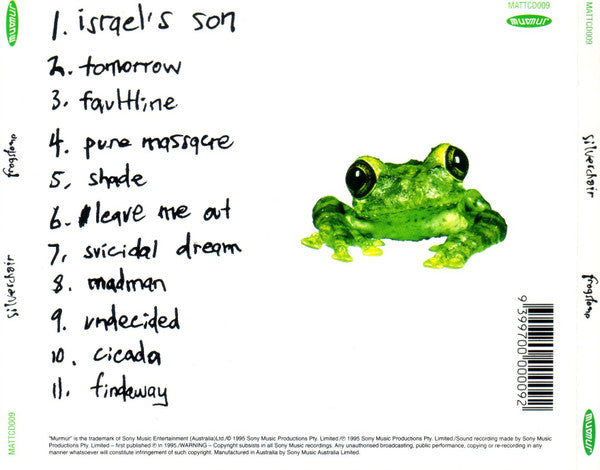 murmur
MATTCD009
frogstomp
silverchair
MATTCD009
1. israel's son
2. tomorrow
3. faultline
4. pure massacre
5. shade
6. leave me out
7. suicidal dream
8. madman
9. undecided
10. cicada
11. findaway
9399700000092
"Murmur" is the trademark of Sony Music Entertainment (Australia)Ltd./© 1995 Sony Music Productions Pty. Limited/℗ 1995 Sony Music Productions Pty. Limited./Sound recording made by Sony Music
Productions Pty. Limited – first published ℗ in 1995./WARNING – Copyright subsists in all Sony Music recordings. Any unauthorised broadcasting, public performance, copying or re-recording in any
manner whatsoever will constitute infringement of such copyright. Manufactured in Australia by Sony Music Australia Limited.
murmur
MATTCD009
silverchair
frogstomp
murmur